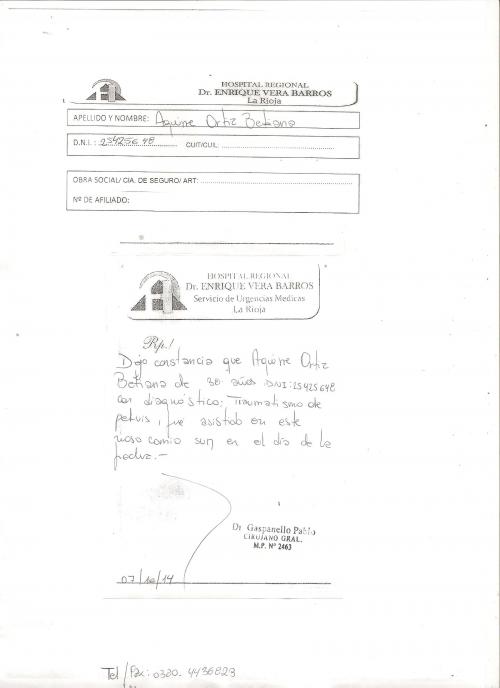 HOSPITAL REGIONAL
Dr. ENRIQUE VERA BARROS
La Rioja
APELLIDO Y NOMBRE: Aguirre Ortiz Betiana
D.N.I.: 25425648 CUIT/CUIL:
OBRA SOCIAL/ CIA. DE SEGURO/ ART:
Nº DE AFILIADO:
HOSPITAL REGIONAL
Dr. ENRIQUE VERA BARROS
Servicio de Urgencias Medicas
La Rioja
Rp.!
Dejo constancia que Aguirre Ortiz
Betiana de 30 años DNI: 25425648
con diagnóstico: Traumatismo de
pelvis, fue asistido en este
nosocomio en el día de la
fecha.-
Dr Gaspanello Pablo
CIRUJANO GRAL.
M.P. Nº 2463
07/10/14
Tel/Fax: 0380. 4436823